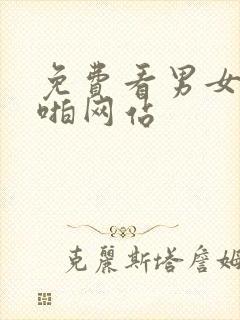 免費看男女
啪网站
克麗斯塔詹姆